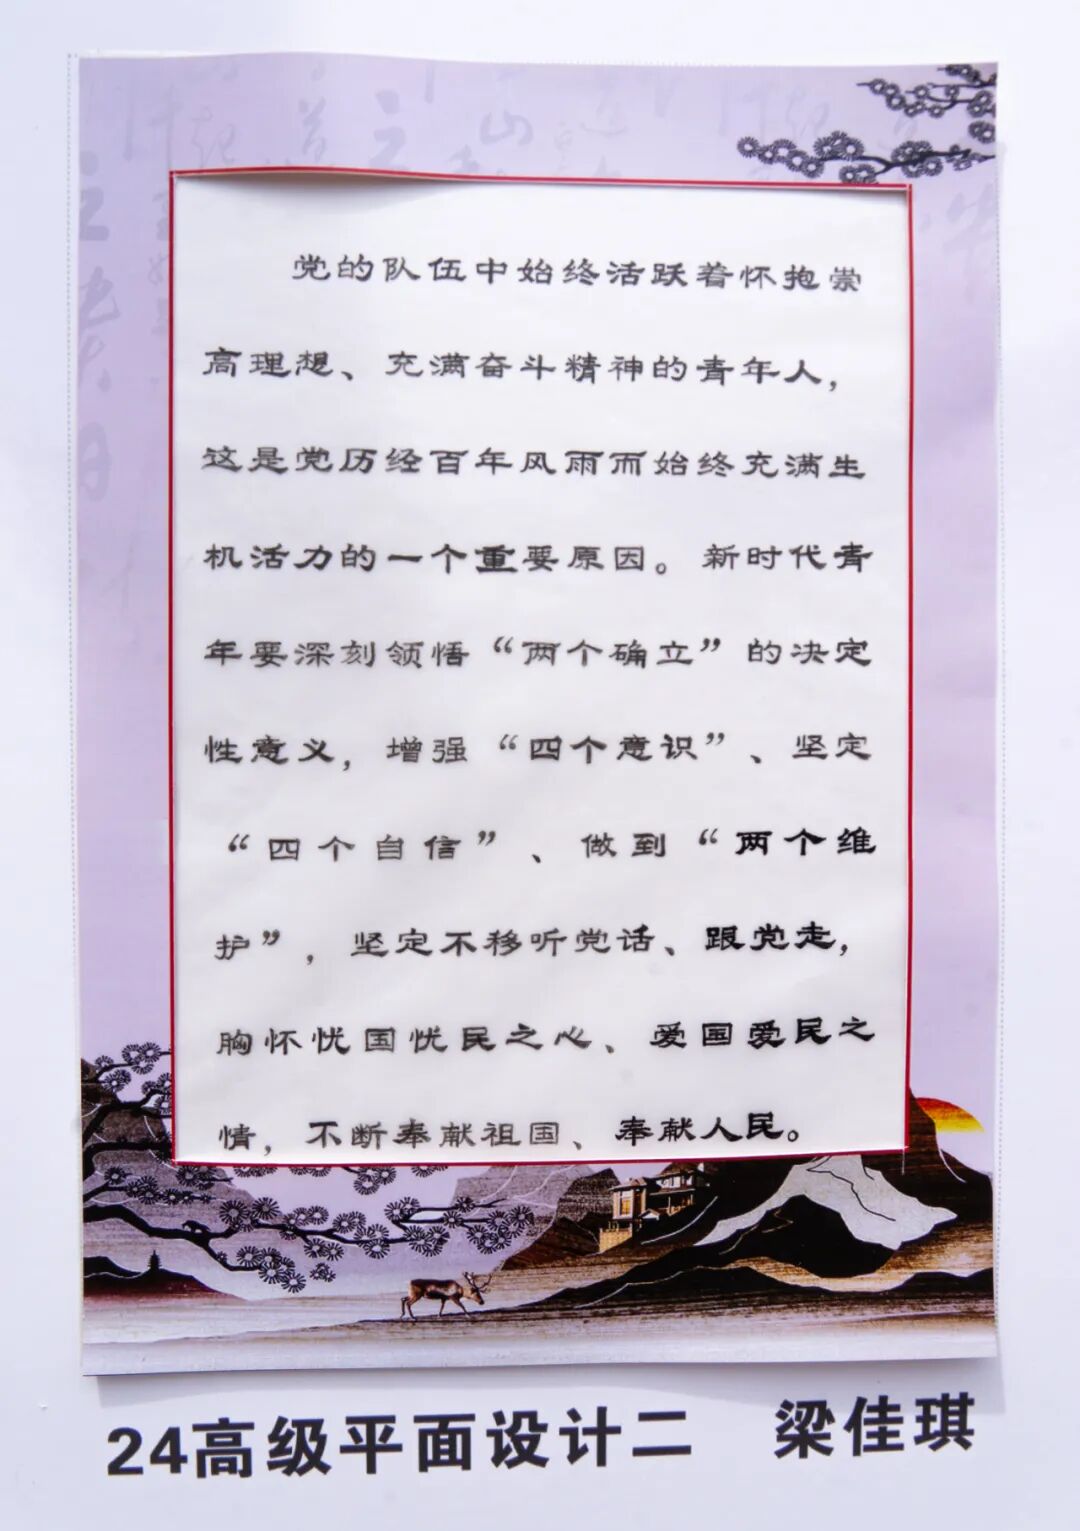 党的队伍中始终活跃着怀抱崇
高理想、充满奋斗精神的青年人，
这是党历经百年风雨而始终充满生
机活力的一个重要原因。新时代青
年要深刻领悟“两个确立”的决定
性意义，增强“四个意识”、坚定
“四个自信”、做到“两个维
护”，坚定不移听党话、跟党走，
胸怀忧国忧民之心、爱国爱民之
情，不断奉献祖国、奉献人民。
24高级平面设计二 梁佳琪